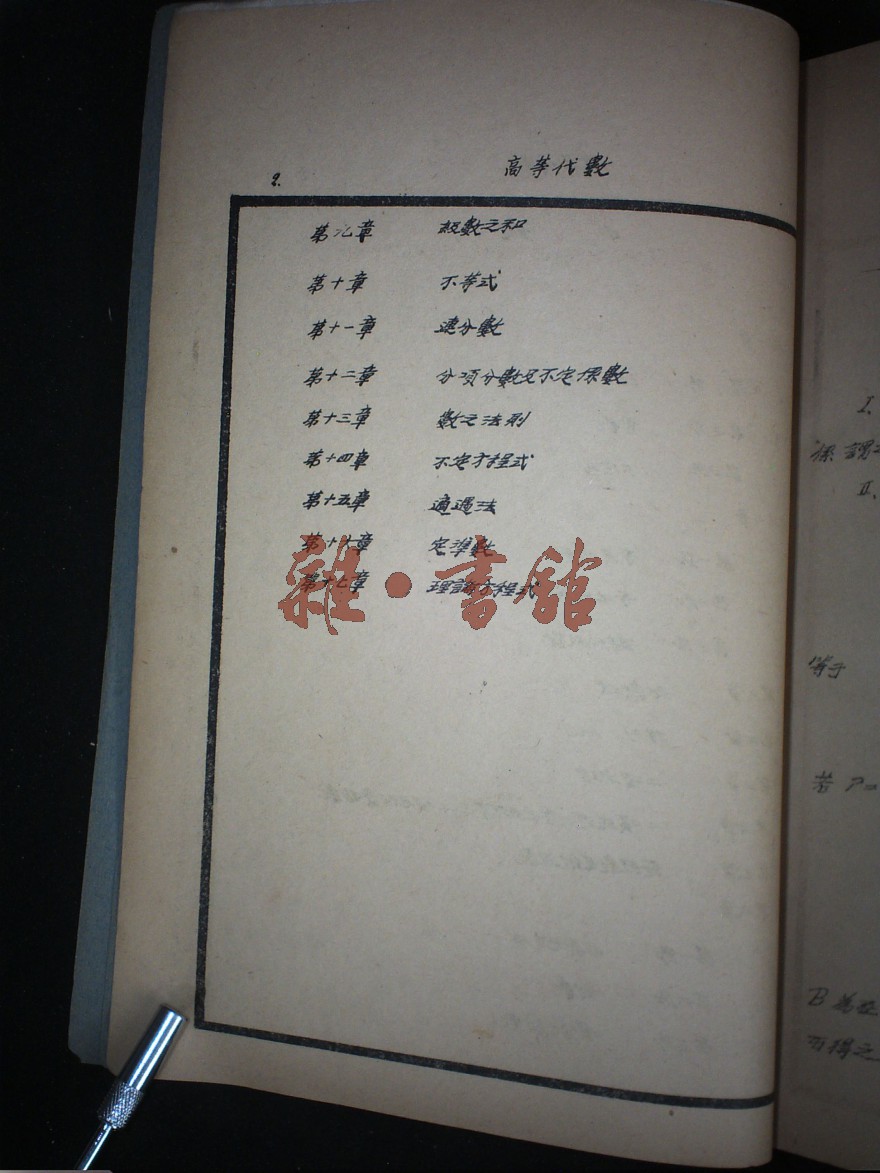 2.
高等代數
第九章 級數之和
第十章 不等式
第十一章 連分數
第十二章 分項分數及不定係數
第十三章 數之法則
第十四章 不定方程式
第十五章 適遇法
第十六章 定準數
第十七章 理論方程式
雜·書館
I.
係謂之
II.
等于
若 P=
B為
而得之